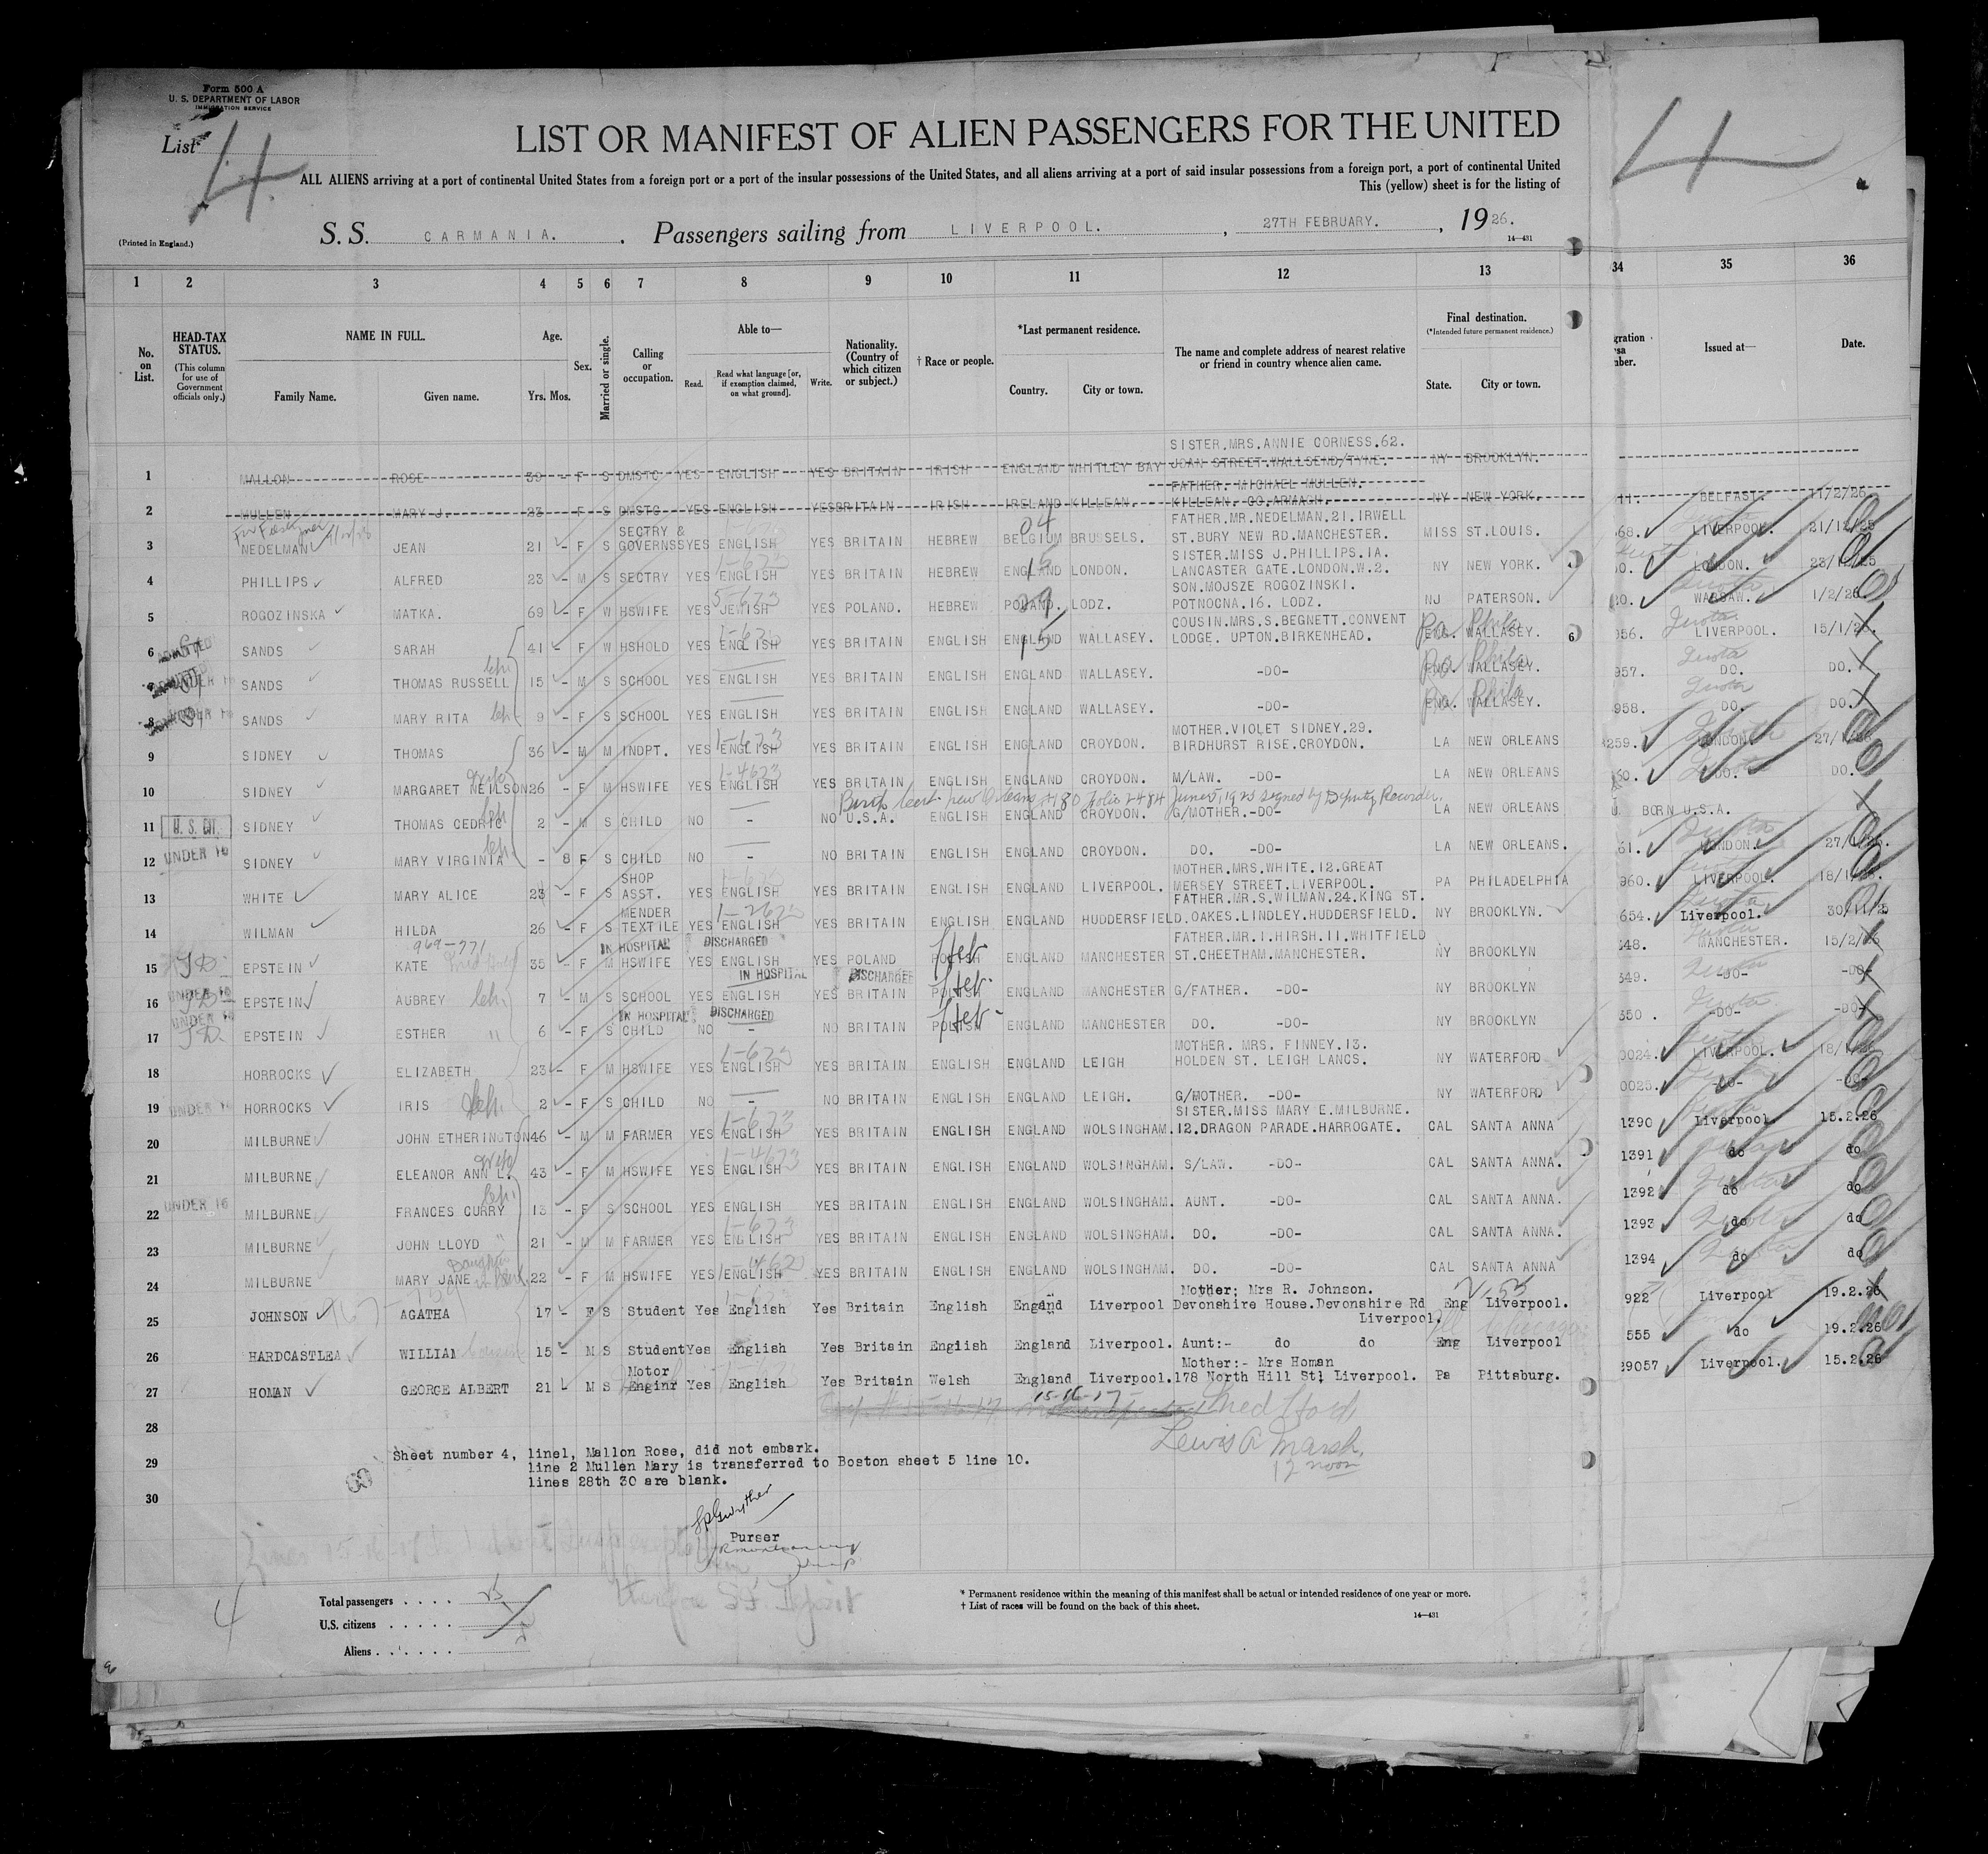 Form 500 A
U. S. DEPARTMENT OF LABOR
IMMIGRATION SERVICE
List 4
4
LIST OR MANIFEST OF ALIEN PASSENGERS FOR THE UNITED
ALL ALIENS arriving at a port of continental United States from a foreign port or a port of the insular possessions of the United States, and all aliens arriving at a port of said insular possessions from a foreign port, a port of continental United
This (yellow) sheet is for the listing of
(Printed in England.)
S. S. CARMANIA. Passengers sailing from LIVERPOOL. , 27TH FEBRUARY. , 1926.
14—431
1 2 3 4 5 6 7 8 9 10 11 12 13 34 35 36
No. on List.
HEAD-TAX STATUS.
(This column for use of Government officials only.)
NAME IN FULL.
Family Name. Given name.
Age.
Yrs. Mos.
Sex.
Married or single.
Calling or occupation.
Able to—
Read. Read what language [or, if exemption claimed, on what ground]. Write.
Nationality. (Country of which citizen or subject.)
† Race or people.
*Last permanent residence.
Country. City or town.
The name and complete address of nearest relative or friend in country whence alien came.
Final destination.
(*Intended future permanent residence.)
State. City or town.
gration
sa
ber.
Issued at—
Date.
SISTER.MRS.ANNIE CORNESS.62.
1 MALLON ROSE 39 - F S DMSTC YES ENGLISH YES BRITAIN IRISH ENGLAND WHITLEY BAY JOAN STREET.WALLSEND/TYNE. NY BROOKLYN.
FATHER. MICHAEL MULLEN.
2 MULLEN MARY J. 23 F S DMSTC YES ENGLISH YES BRITAIN IRISH IRELAND KILLEAN. KILLEAN. CO.ARMAGH. NY NEW YORK. 11. BELFAST. 11/2/26
SECTRY & FATHER.MR.NEDELMAN.21.IRWELL
3 NEDELMAN JEAN 21 - F S GOVERNSS YES ENGLISH YES BRITAIN HEBREW BELGIUM BRUSSELS. ST.BURY NEW RD.MANCHESTER. MISS ST.LOUIS. 68. LIVERPOOL. 21/12/25
04
SISTER.MISS J.PHILLIPS.1A.
4 PHILLIPS ALFRED 23 - M S SECTRY YES ENGLISH YES BRITAIN HEBREW ENGLAND LONDON. LANCASTER GATE.LONDON.W.2. NY NEW YORK. 0. LONDON. 23/12/25
15
SON.MOJSZE ROGOZINSKI.
5 ROGOZINSKA MATKA. 69 - F W HSWIFE YES JEWISH YES POLAND. HEBREW POLAND. LODZ. POTNOCNA.16. LODZ. NJ PATERSON. 20. WARSAW. 1/2/26
COUSIN.MRS.S.BEGNETT.CONVENT
6 SANDS SARAH 41 - F W HSHOLD YES ENGLISH YES BRITAIN ENGLISH ENGLAND WALLASEY. LODGE. UPTON.BIRKENHEAD. ENG. WALLASEY. Pa Phila 956. LIVERPOOL. 15/1/26
15
7 SANDS THOMAS RUSSELL 15 - M S SCHOOL YES ENGLISH YES BRITAIN ENGLISH ENGLAND WALLASEY. -DO- ENG. WALLASEY. Pa Phila 957. DO. DO.
8 SANDS MARY RITA 9 - F S SCHOOL YES ENGLISH YES BRITAIN ENGLISH ENGLAND WALLASEY. -DO- ENG. WALLASEY. Pa Phila 958. DO. DO.
MOTHER.VIOLET SIDNEY.29.
9 SIDNEY THOMAS 36 - M M INDPT. YES ENGLISH YES BRITAIN ENGLISH ENGLAND CROYDON. BIRDHURST RISE.CROYDON. LA NEW ORLEANS 259. LONDON
10 SIDNEY MARGARET NEILSON 26 - F M HSWIFE YES ENGLISH YES BRITAIN ENGLISH ENGLAND CROYDON. M/LAW. -DO- LA NEW ORLEANS 60. DO. DO.
Birth cert. New Orleans #180 folio 2484 June 5, 1923 signed by Deputy Recorder.
11 U. S. CIT. SIDNEY THOMAS CEDRIC 2 - M S CHILD NO - NO U.S.A. ENGLISH ENGLAND CROYDON. G/MOTHER.-DO- LA NEW ORLEANS BORN U.S.A.
12 UNDER 16 SIDNEY MARY VIRGINIA - 8 F S CHILD NO - NO BRITAIN ENGLISH ENGLAND CROYDON. DO. -DO- LA NEW ORLEANS. 61. LONDON. 27/1/26.
SHOP MOTHER.MRS.WHITE.12.GREAT
13 WHITE MARY ALICE 23 - F S ASST. YES ENGLISH YES BRITAIN ENGLISH ENGLAND LIVERPOOL. MERSEY STREET.LIVERPOOL. PA PHILADELPHIA 960. LIVERPOOL. 18/1/26.
MENDER FATHER.MR.S.WILMAN.24.KING ST.
14 WILMAN HILDA 26 - F S TEXTILE YES ENGLISH YES BRITAIN ENGLISH ENGLAND HUDDERSFIELD.OAKES.LINDLEY.HUDDERSFIELD. NY BROOKLYN. 654. Liverpool. 30/11/25
969-771 IN HOSPITAL DISCHARGED FATHER.MR.I.HIRSH.11.WHITFIELD
15 EPSTEIN KATE 35 - F M HSWIFE YES ENGLISH YES POLAND POLISH Heb ENGLAND MANCHESTER ST.CHEETHAM.MANCHESTER. NY BROOKLYN 348. MANCHESTER. 15/2/26
IN HOSPITAL DISCHARGED
16 UNDER 16 EPSTEIN AUBREY 7 - M S SCHOOL YES ENGLISH YES BRITAIN POLISH Heb ENGLAND MANCHESTER G/FATHER. -DO- NY BROOKLYN 349. -DO- -DO-
IN HOSPITAL DISCHARGED
17 UNDER 16 EPSTEIN ESTHER " 6 - F S CHILD NO - NO BRITAIN POLISH Heb ENGLAND MANCHESTER DO. -DO- NY BROOKLYN 350. -DO- -DO-
MOTHER. MRS. FINNEY.13.
18 HORROCKS ELIZABETH 23 - F M HSWIFE YES ENGLISH YES BRITAIN ENGLISH ENGLAND LEIGH HOLDEN ST. LEIGH LANCS. NY WATERFORD 0024. LIVERPOOL. 18/1/26
19 UNDER 16 HORROCKS IRIS 2 - F S CHILD NO - NO BRITAIN ENGLISH ENGLAND LEIGH. G/MOTHER. -DO- NY WATERFORD 0025. -DO- -DO-
SISTER.MISS MARY E.MILBURNE.
20 MILBURNE JOHN ETHERINGTON 46 - M M FARMER YES ENGLISH YES BRITAIN ENGLISH ENGLAND WOLSINGHAM. 12.DRAGON PARADE.HARROGATE. CAL SANTA ANNA 1390 Liverpool. 15.2.26
21 MILBURNE ELEANOR ANN L. 43 - F M HSWIFE YES ENGLISH YES BRITAIN ENGLISH ENGLAND WOLSINGHAM. S/LAW. -DO- CAL SANTA ANNA. 1391 do do
22 UNDER 16 MILBURNE FRANCES CURRY 13 - F S SCHOOL YES ENGLISH YES BRITAIN ENGLISH ENGLAND WOLSINGHAM. AUNT. -DO- CAL SANTA ANNA. 1392 do do
23 MILBURNE JOHN LLOYD 21 - M M FARMER YES ENGLISH YES BRITAIN ENGLISH ENGLAND WOLSINGHAM. DO. -DO- CAL SANTA ANNA. 1393 do do
24 MILBURNE MARY JANE 22 - F M HSWIFE YES ENGLISH YES BRITAIN ENGLISH ENGLAND WOLSINGHAM. DO. -DO- CAL SANTA ANNA 1394 do do
Mother; Mrs R. Johnson.
25 JOHNSON AGATHA 17 - F S Student Yes English Yes Britain English England Liverpool Devonshire House.Devonshire Rd Eng Liverpool. 922 Liverpool 19.2.26
Liverpool.
26 HARDCASTLEA WILLIAM 15 - M S Student Yes English Yes Britain English England Liverpool. Aunt:- do do Eng Liverpool 555 do 19.2.26
Motor Mother:- Mrs Homan
27 HOMAN GEORGE ALBERT 21 - M S Enginr Yes English Yes Britain Welsh England Liverpool. 178 North Hill St; Liverpool. Pa Pittsburg. 29057 Liverpool. 15.2.26
15-16-17
28
Lewis A Marsh,
12 noon
Sheet number 4, line1, Mallon Rose, did not embark.
29 line 2 Mullen Mary is transferred to Boston sheet 5 line 10.
lines 28th 30 are blank.
30
Purser
4
Total passengers . . . . 25
U.S. citizens . . . . .
Aliens . . . . . .
* Permanent residence within the meaning of this manifest shall be actual or intended residence of one year or more.
† List of races will be found on the back of this sheet.
14—431